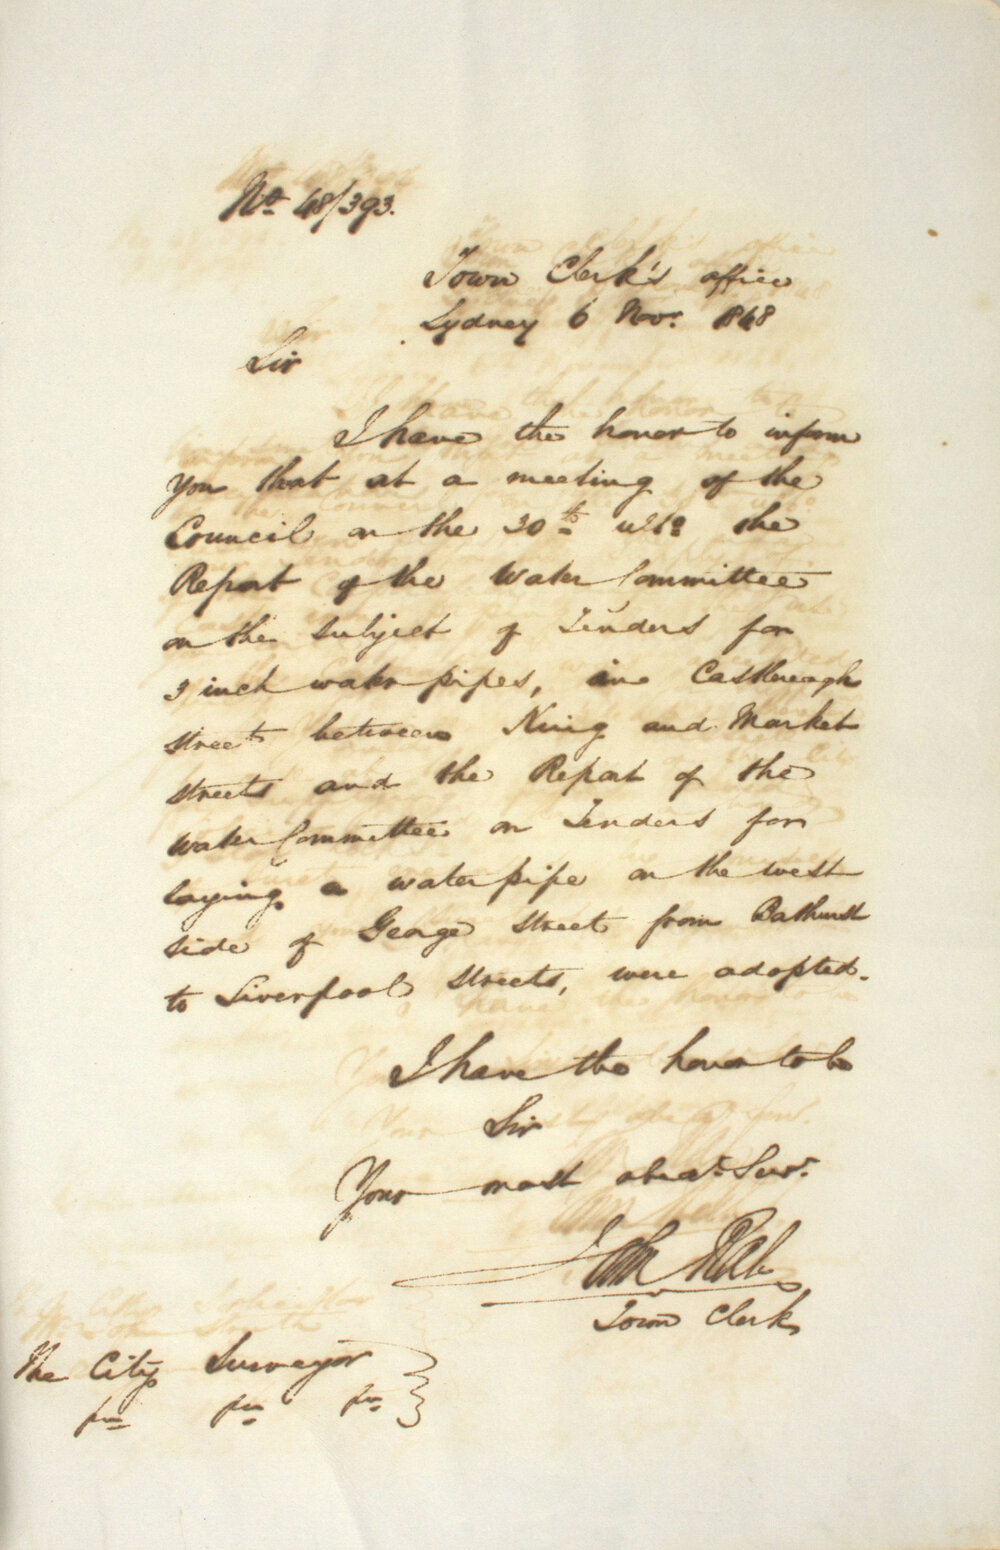 No. 48/393.
Town Clerk's office
Sydney 6 Novr. 1848
Sir
I have the honor to inform
you that at a meeting of the
Council on the 30th ulto. the
Report of the Water Committee
on the subject of Tenders for
3 inch water pipes, in Castlereagh
street between King and Market
streets and the Report of the
Water Committee on Tenders for
laying a water pipe on the west
side of George street from Bathurst
to Liverpool streets, were adopted.
I have the honor to be
Sir
Your most obedt. Servt.
John
Town Clerk
The City Surveyor